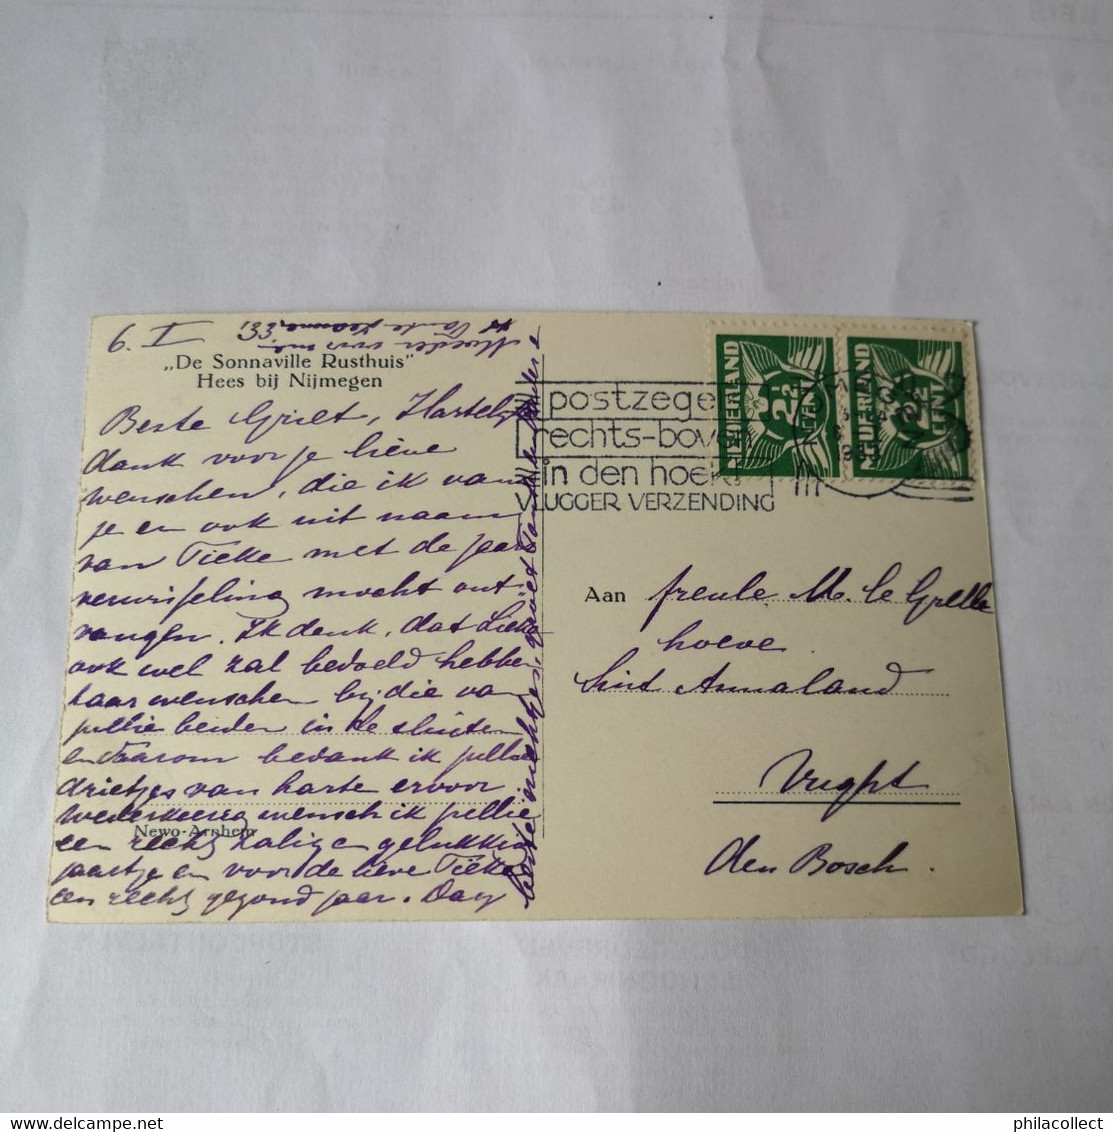 6. I '33
„De Sonnaville Rusthuis"
Hees bij Nijmegen
Beste Griet, Hartelijk
dank voor je lieve
wenschen, die ik van
je en ook uit naam
van Tieke met de jaar
verwisseling mocht ont
vangen. Ik denk, dat
ook wel zal bedoeld hebben
haar wenschen bij die van
jullie beiden in te sluiten
en daarom bedank ik jullie
drietjes van harte ervoor
Wederkeerig wensch ik jullie
een recht zalig en gelukkig
jaartje en voor de lieve Tieke
een recht gezond jaar. Dag
Newo-Arnhem
postzegel
rechts-boven
in den hoek
VLUGGER VERZENDING
NEDERLAND
2½
CENT
NEDERLAND
2½
CENT
Aan freule M. le Grelle
hoeve
Sint Annaland
Vught
den Bosch.
philacollect